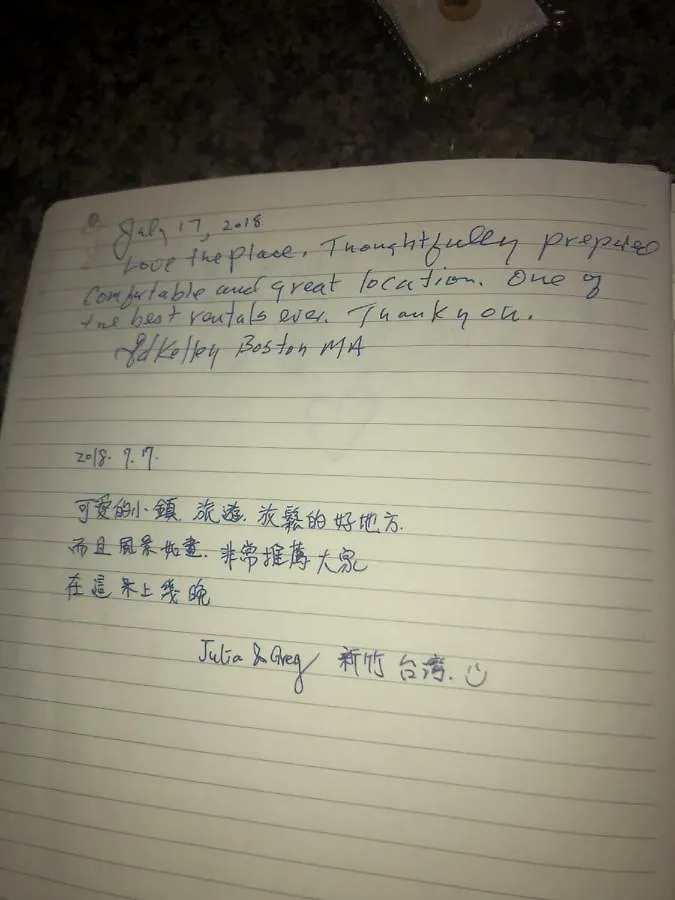 July 17, 2018
Love the place. Thoughtfully prepared
Comfortable and great location. One of
the best rentals ever. Thank you.
Ed Kelley Boston MA
2018. 7. 7.
可愛的小鎮. 旅遊. 放鬆的好地方.
而且風景如畫. 非常推薦大家
在這呆上幾晚
Julia & Greg 新竹 台湾.